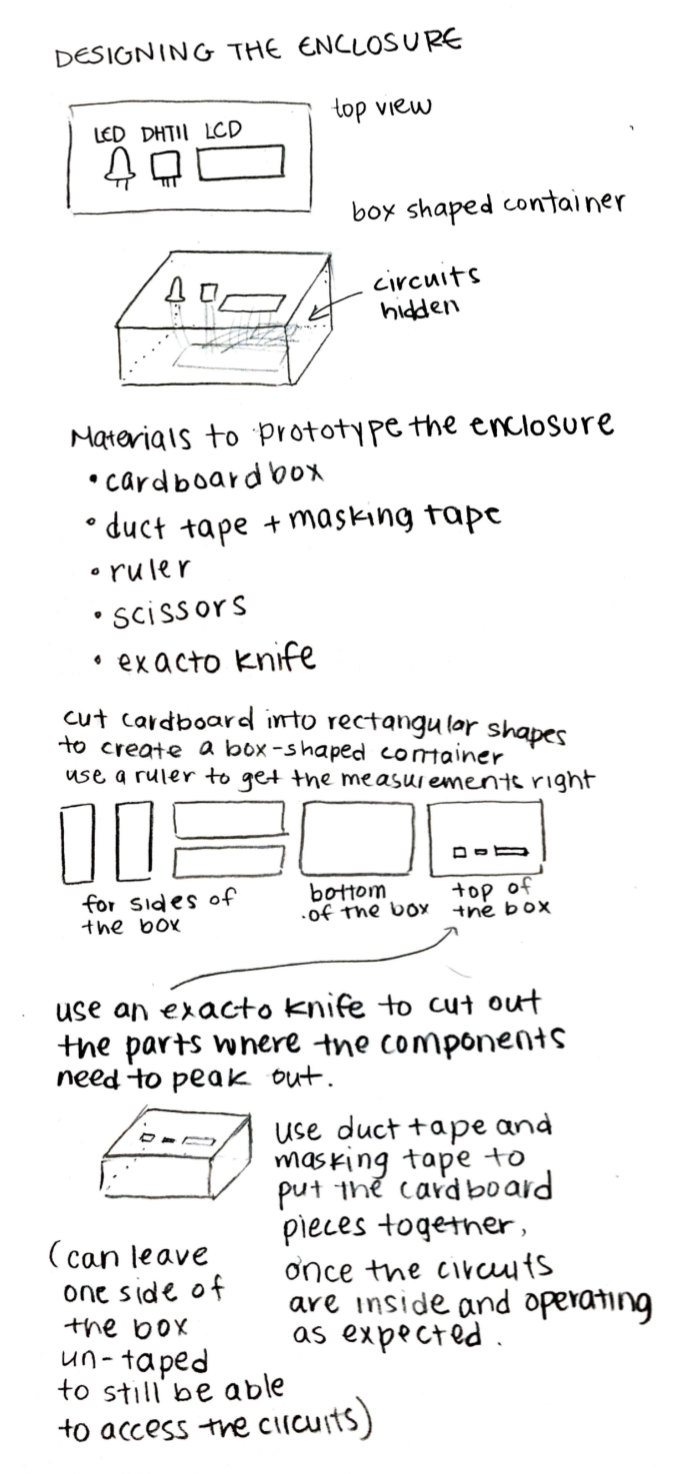 DESIGNING THE ENCLOSURE
top view
LED DHT11 LCD
box shaped container
circuits
hidden
Materials to prototype the enclosure
• cardboard box
• duct tape + masking tape
• ruler
• scissors
• exacto knife
cut cardboard into rectangular shapes
to create a box-shaped container
use a ruler to get the measurements right
for sides of
the box
bottom
of the box
top of
the box
use an exacto knife to cut out
the parts where the components
need to peak out.
use duct tape and
masking tape to
put the cardboard
pieces together,
once the circuits
are inside and operating
as expected.
(can leave
one side of
the box
un-taped
to still be able
to access the circuits)